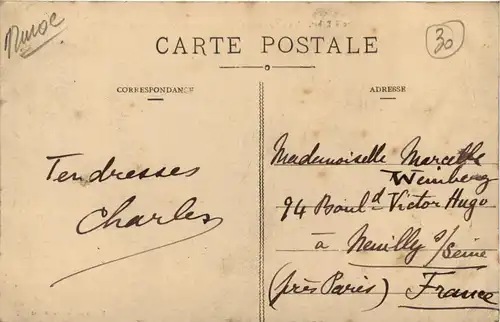 Maroc
30
CARTE POSTALE
CORRESPONDANCE
ADRESSE
Tendresses
Charles
Mademoiselle Marcelle
Weinberg
94 Boul^d Victor Hugo
à Neuilly s/Seine
(près Paris) France